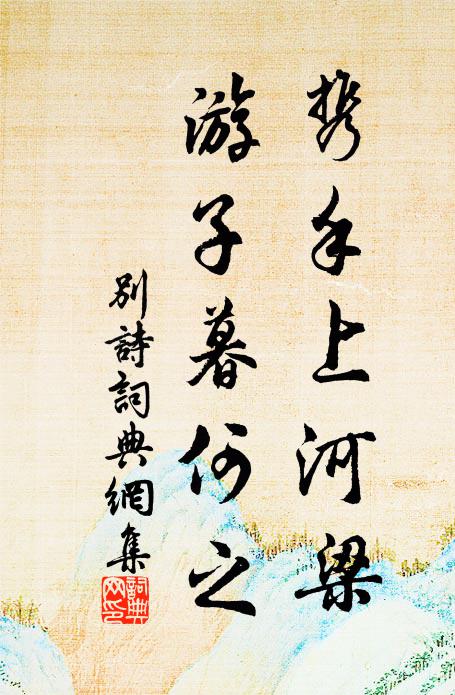 携手上河梁
游子暮何之
別詩詞典網集
詞典